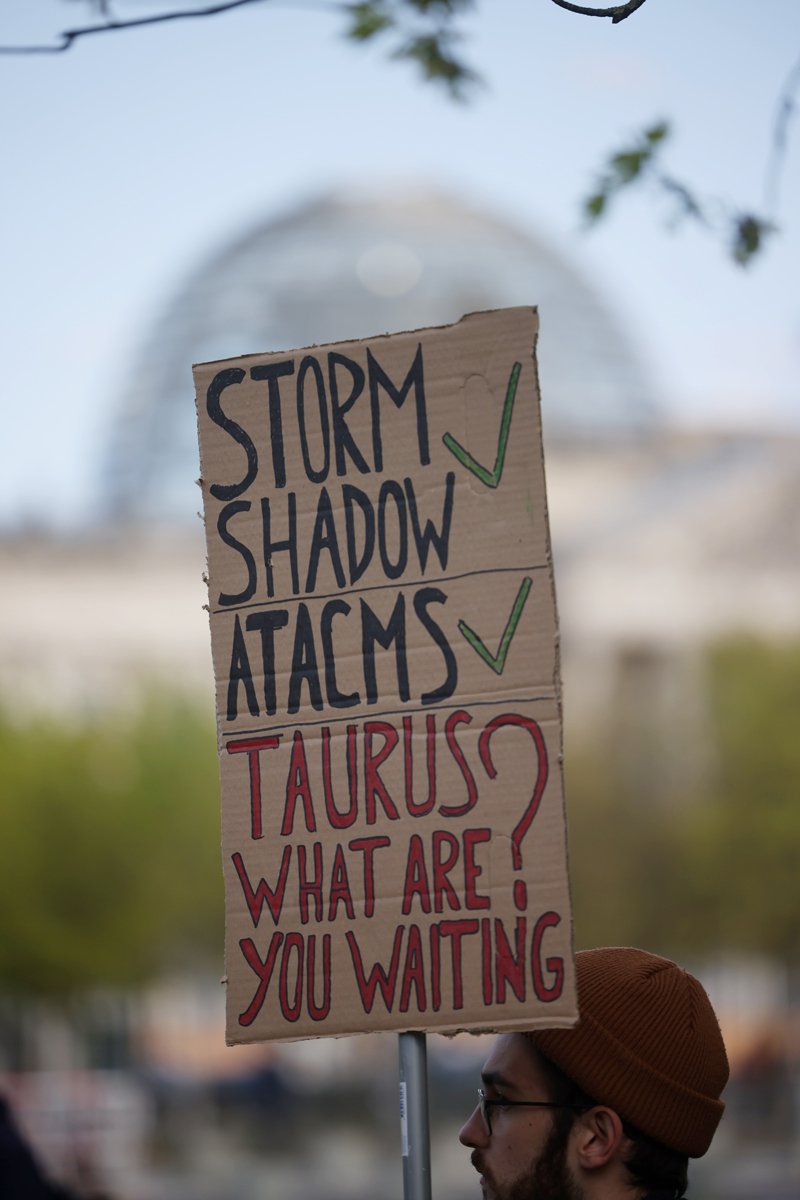 STORM
SHADOW
ATACMS
TAURUS?
WHAT ARE
YOU WAITING